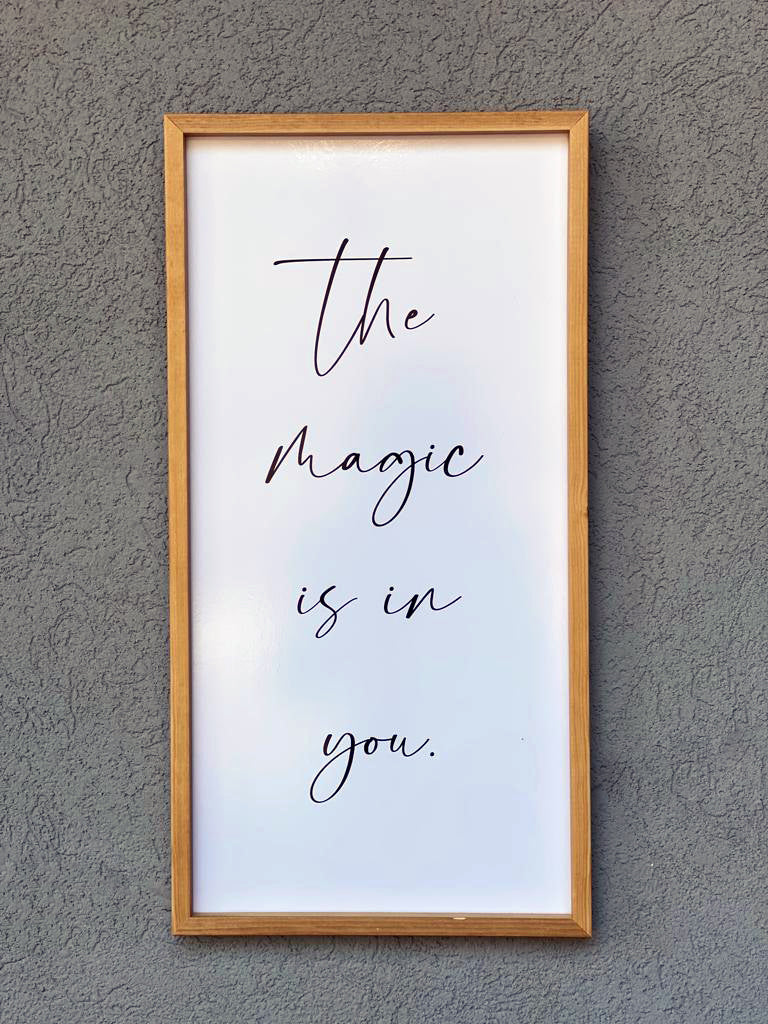 the
magic
is in
you.